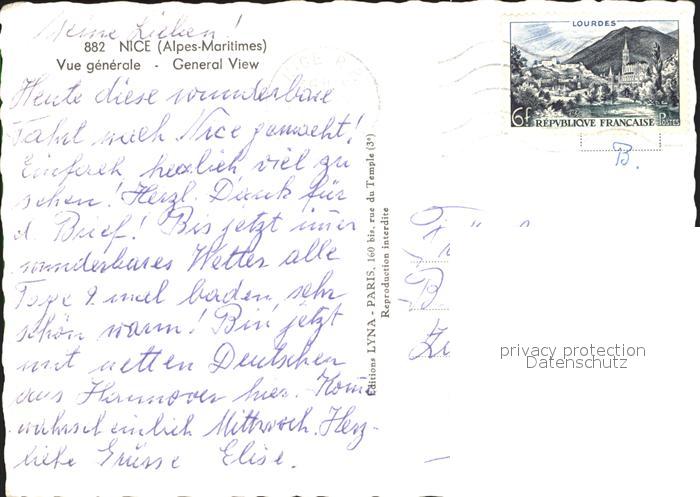 Meine Lieben!
882 NICE (Alpes-Maritimes)
Vue générale - General View
Heute diese wunderbare
Fahrt nach Nice gemacht!
Einfach herrlich viel zu
sehen! Herzl. Dank für
d. Brief! Bis jetzt immer
wunderbares Wetter alle
Tage 2 mal baden, sehr
schön warm! Bin jetzt
mit netten Deutschen
aus Hannover hier. Komme
wahrscheinlich Mittwoch. Herz-
liche Grüsse Elise.
Editions LYNA - PARIS, 160 bis, rue du Temple (3e)
Reproduction interdite
LOURDES
6f RÉPVBLIQVE FRANÇAISE POSTES
B.
privacy protection
Datenschutz